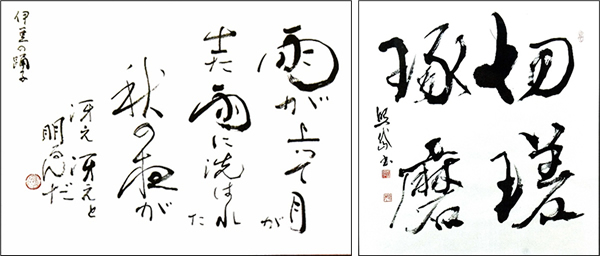 雨が上って月が
出た雨に洗はれた
秋の夜が
冴え冴えと
明るんだ
伊豆の踊子
切瑳
琢磨